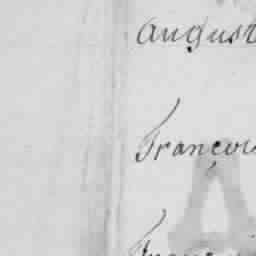 August
Françoi